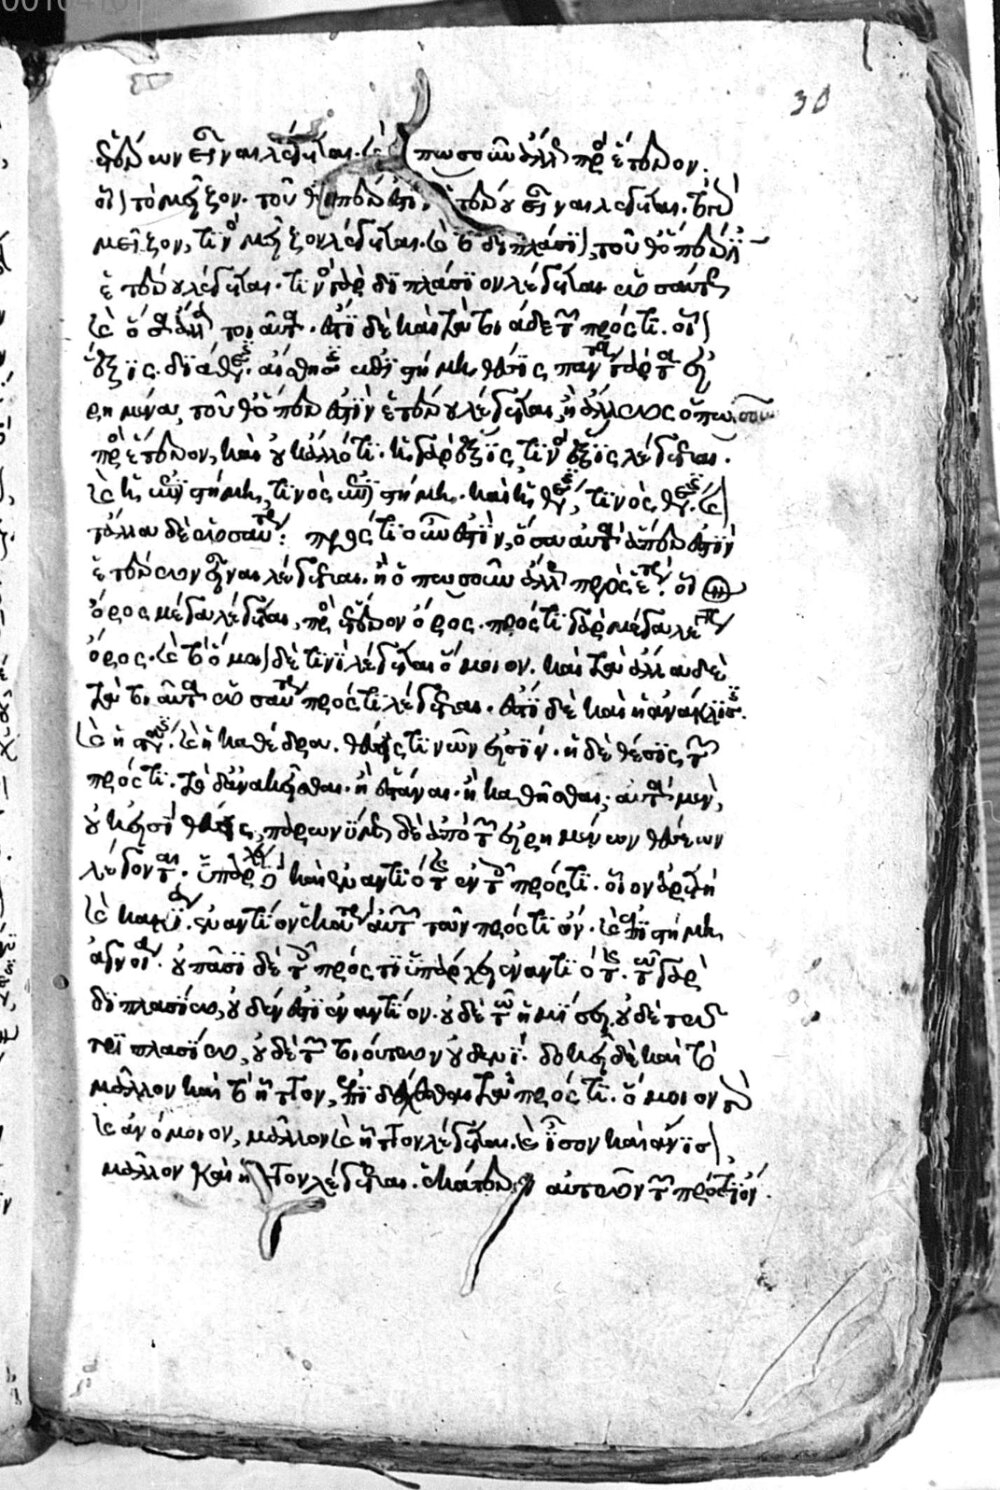 ἑτέρων εἶναι λέγεται· ἢ πωσοῦν ἄλλως πρὸς ἕτερον.
οἷον τὸ μεῖζον· τοῦθ' ὅπερ ἐστὶν ἑτέρου εἶναι λέγεται· τινὸς
μεῖζον, τινὸς μεῖζον λέγεται· καὶ τὸ διπλάσιον, τοῦθ' ὅπερ ἐστὶν
ἑτέρου λέγεται· τινὸς γὰρ διπλάσιον λέγεται· ὡσαύτως
καὶ ὅσα ἄλλα τοιαῦτα· ἔστι δὲ καὶ τὰ τοιάδε τῶν πρός τι· οἷον
ἕξις· διάθεσις· αἴσθησις· ἐπιστήμη· θέσις· πάντα γὰρ τὰ εἰ
ρημένα, τοῦθ' ὅπερ ἐστὶν ἑτέρου λέγεται, ἢ ἄλλως ὅπωσοῦν
πρὸς ἕτερον, καὶ οὐκ ἄλλό τι· ἡ γὰρ ἕξις, τινὸς ἕξις λέγεται·
καὶ ἡ ἐπιστήμη, τινὸς ἐπιστήμη· καὶ ἡ θέσις, τινὸς θέσις· καὶ
τἄλλα δὲ ὡσαύτως: πρός τι οὖν ἐστὶν, ὅσα αὐτὰ ἅπερ ἐστὶν
ἑτέρων εἶναι λέγεται· ἢ ὁπωσοῦν ἄλλως πρὸς ἕτερον· οἷον
ὄρος μέγα λέγεται, πρὸς ἕτερον ὄρος· πρός τι γὰρ μέγα λέγεται
ὄρος· καὶ τὸ ὅμοιον δὲ τινὶ λέγεται ὅμοιον· καὶ τὰ ἄλλα δὲ
τὰ τοιαῦτα ὡσαύτως πρός τι λέγεται· ἔστι δὲ καὶ ἡ ἀνάκλισις·
καὶ ἡ στάσις· καὶ ἡ καθέδρα· θέσεις τινῶν εἰσίν· ἡ δὲ θέσις, τῶν
πρός τι· τὸ δ' ἀνακεῖσθαι· ἢ ἑστάναι· ἢ καθῆσθαι, αὐτὰ μὲν,
οὐκ εἰσὶ θέσεις, παρωνύμως δὲ ἀπὸ τῶν εἰρημένων θέσεων
λέγονται· ὑπάρχει δὲ καὶ ἐναντιότης ἐν τοῖς πρός τι· οἷον ἀρετὴ
καὶ κακία· ἐναντίον ἑκάτερον αὐτῶν τῶν πρός τι ὄν· καὶ ἐπιστήμη
ἀγνοία· οὐ πᾶσι δὲ τοῖς πρός τι ὑπάρχει ἐναντιότης· τῷ γὰρ
διπλασίῳ, οὐδέν ἐστι ἐναντίον· οὐδὲ τῷ ἡμίσει· οὐδὲ τῷ
τριπλασίῳ, οὐδὲ τῶν τοιούτων οὐδενί· δοκεῖ δὲ καὶ τὸ
μᾶλλον καὶ τὸ ἧττον, ἐπιδέχεσθαι τὰ πρός τι· ὅμοιον γὰρ
καὶ ἀνόμοιον, μᾶλλον καὶ ἧττον λέγεται· καὶ ἴσον καὶ ἄνισον,
μᾶλλον καὶ ἧττον λέγεται· ἑκάτερον αὐτῶν τῶν πρός τι ὄν·